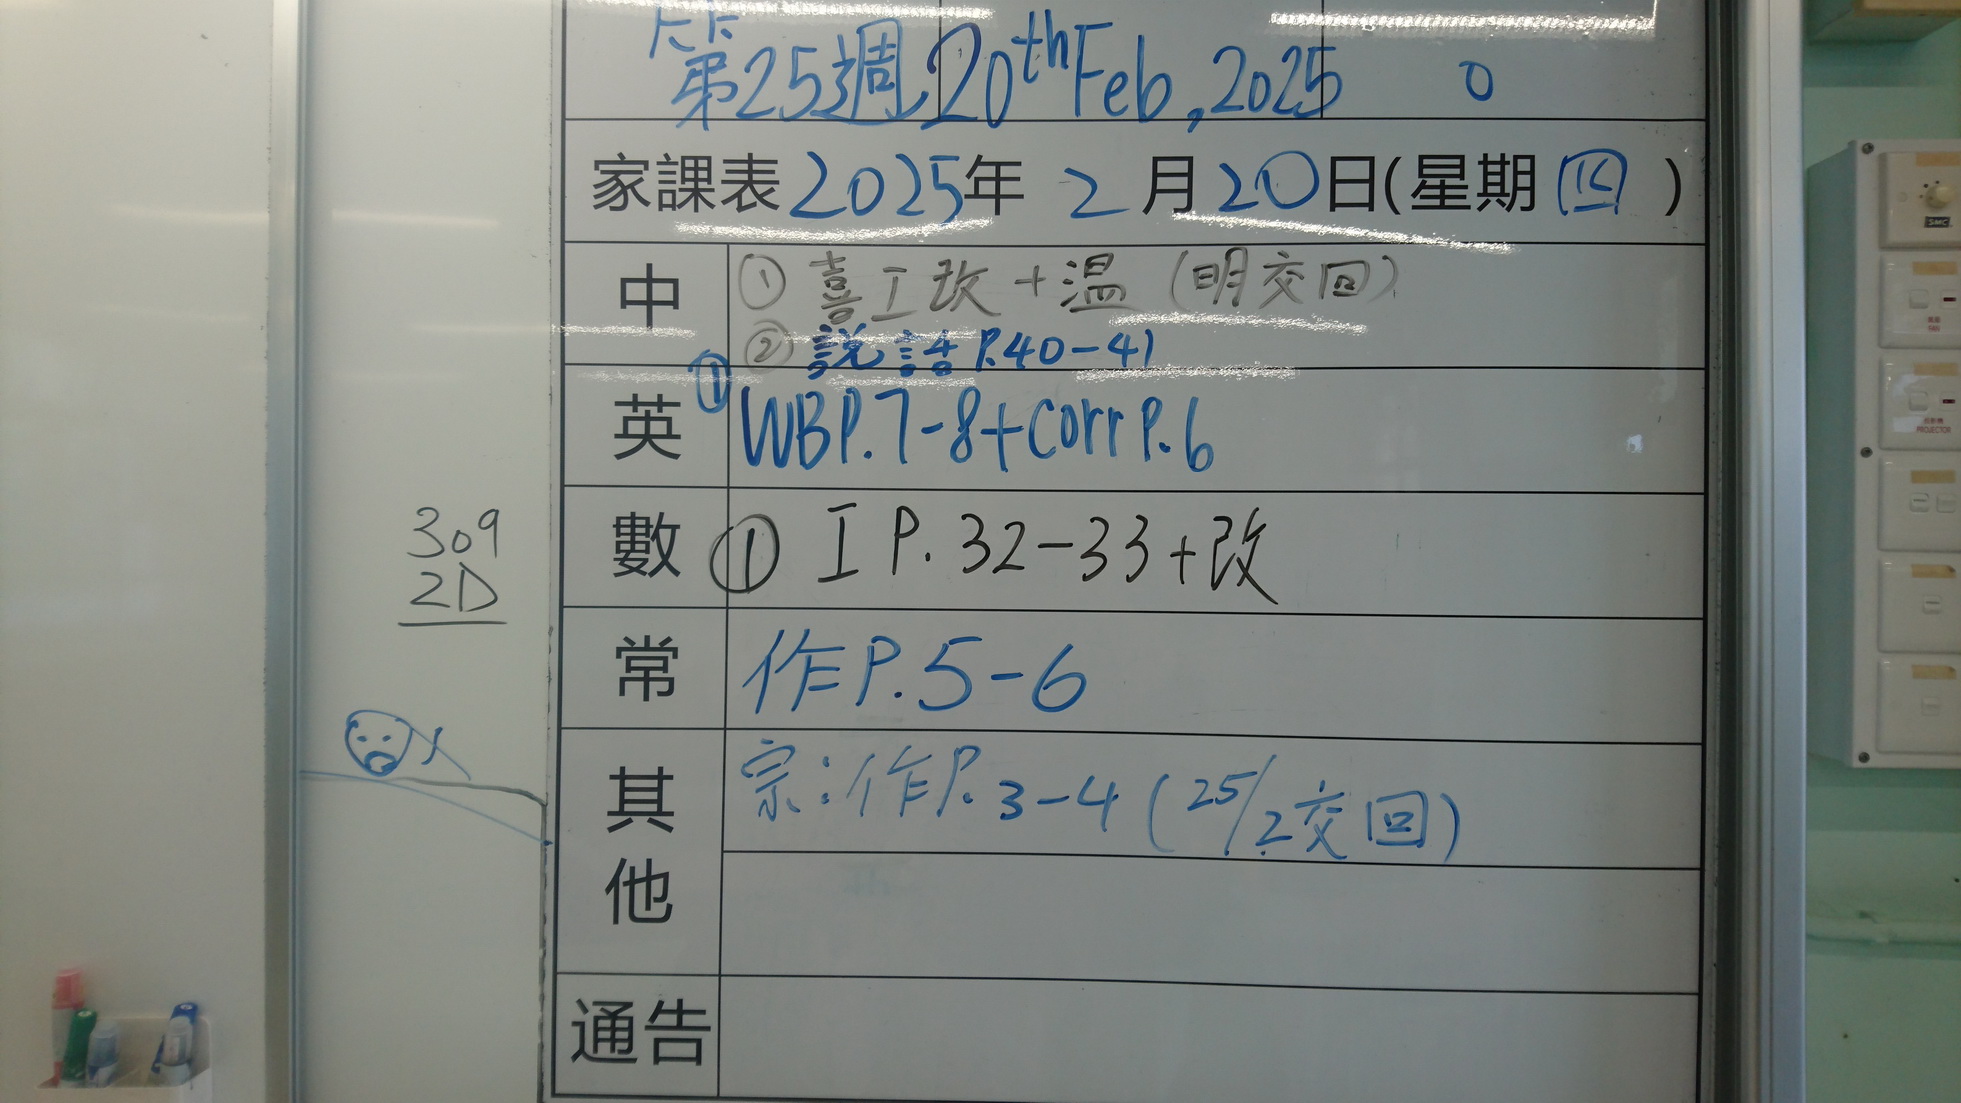 第25週 20th Feb, 2025 0
家課表 2025年 2月20日(星期四)
中 ① 喜工改+温 (明交回)
② 説話 P.40-41
英 ① WB P.7-8+corr P.6
數 ① 工 P.32-33+改
常 作P.5-6
其他 宗:作P.3-4 (25/2交回)
通告
309
2D
SMC
PROJECTOR